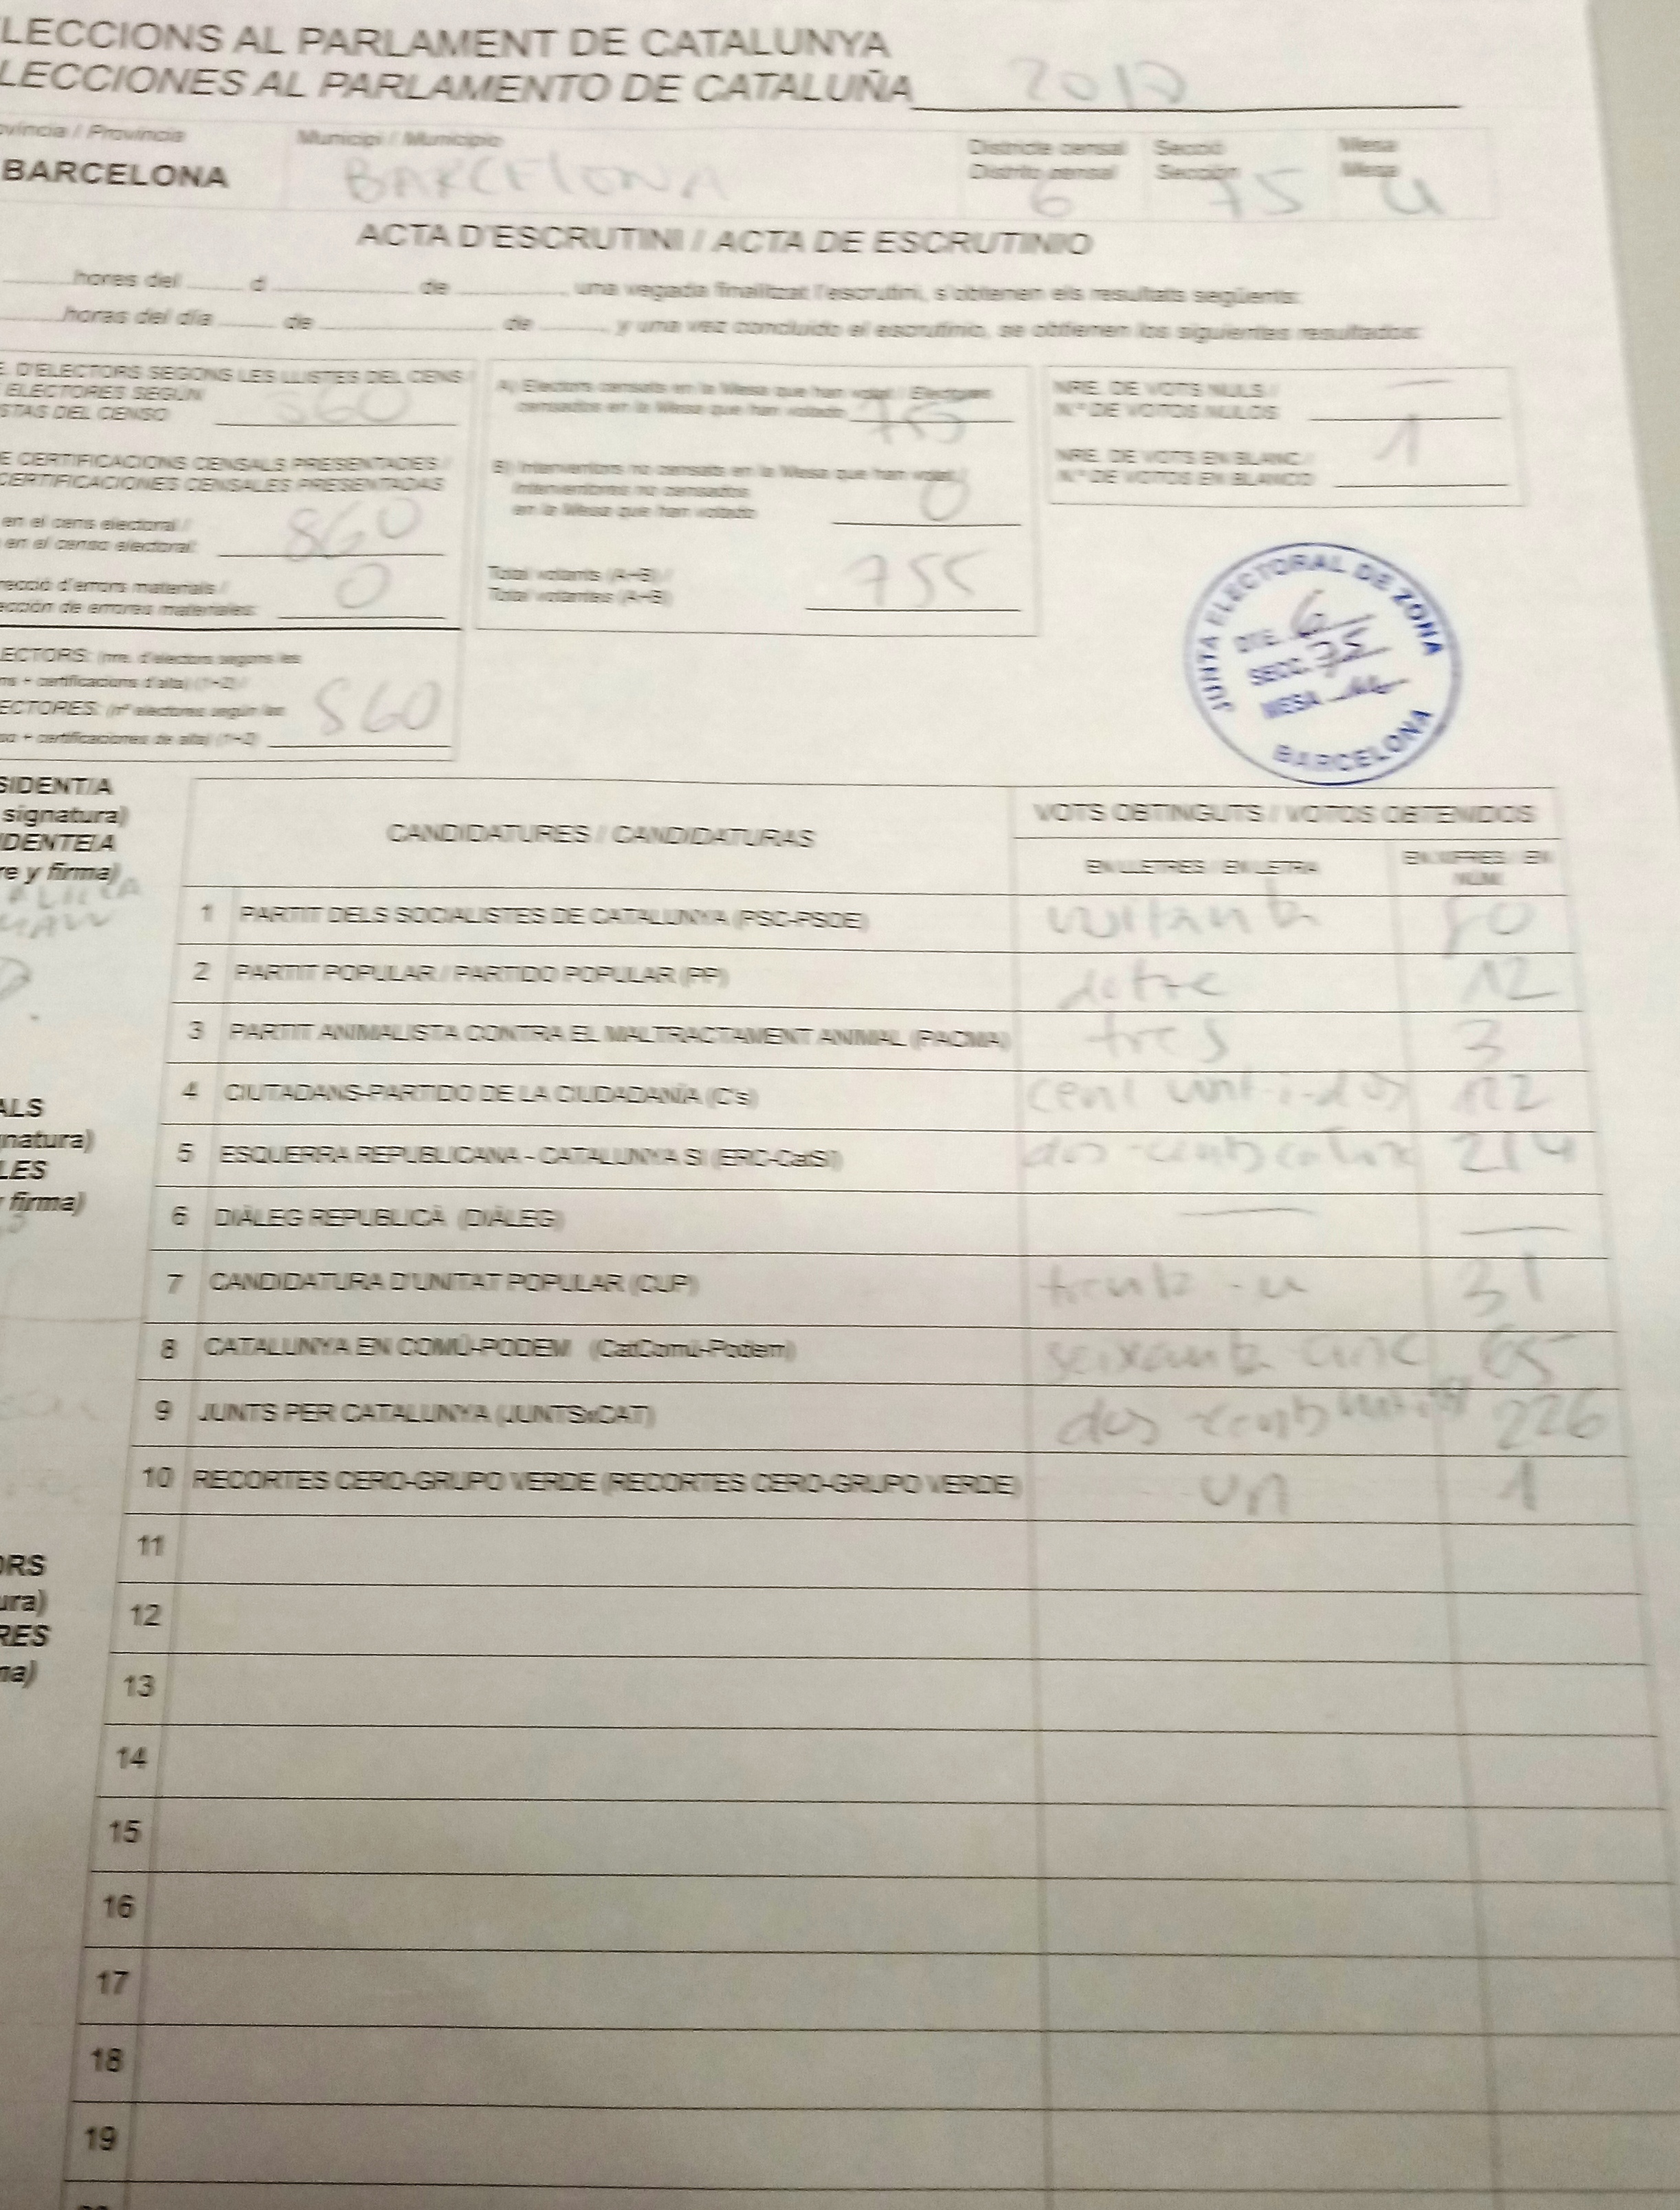 LECCIONS AL PARLAMENT DE CATALUNYA
LECCIONES AL PARLAMENTO DE CATALUÑA 2017
ovíncia / Provincia Municipi / Municipio Districte censal Secció Mesa
Distrito censal Sección Mesa
BARCELONA BARCELONA 6 75 U
ACTA D'ESCRUTINI / ACTA DE ESCRUTINIO
hores del d de , una vegada finalitzat l'escrutini, s'obtenen els resultats següents:
horas del día de de y una vez concluido el escrutinio, se obtienen los siguientes resultados:
E. D'ELECTORS SEGONS LES LLISTES DEL CENS /
ELECTORES SEGÚN
STAS DEL CENSO 860
E CERTIFICACIONS CENSALS PRESENTADES /
CERTIFICACIONES CENSALES PRESENTADAS
en el cens electoral /
en el censo electoral: 860
recció d'errors materials /
ección de errores materiales: 0
ECTORS: (nre. d'electors segons les
ns + certificacions d'alta) (1+2) /
ECTORES: (nº electores según las
so + certificaciones de alta) (1+2) 860
A) Electors censats en la Mesa que han votat / Electores
censados en la Mesa que han votado 755
B) Interventors no censats en la Mesa que han votat /
Interventores no censados
en la Mesa que han votado 0
Total votants (A+B) /
Total votantes (A+B) 755
NRE. DE VOTS NULS /
N.º DE VOTOS NULOS —
NRE. DE VOTS EN BLANC /
N.º DE VOTOS EN BLANCO 1
JUNTA ELECTORAL DE ZONA
DTE. 6
SECC. 75
MESA
BARCELONA
SIDENT/A
signatura)
IDENTE/A
re y firma)
ALS
natura)
LES
firma)
ORS
ura)
RES
na)
CANDIDATURES / CANDIDATURAS VOTS OBTINGUTS / VOTOS OBTENIDOS
EN LLETRES / EN LETRA EN XIFRES / EN NÚM.
1 PARTIT DELS SOCIALISTES DE CATALUNYA (PSC-PSOE) vuitanta 80
2 PARTIT POPULAR / PARTIDO POPULAR (PP) dotze 12
3 PARTIT ANIMALISTA CONTRA EL MALTRACTAMENT ANIMAL (PACMA) tres 3
4 CIUTADANS-PARTIDO DE LA CIUDADANÍA (C's) cent vint-i-dos 122
5 ESQUERRA REPUBLICANA - CATALUNYA SÍ (ERC-CatSí) dos-cents catorze 214
6 DIÀLEG REPUBLICÀ (DIÀLEG) — —
7 CANDIDATURA D'UNITAT POPULAR (CUP) trenta-u 31
8 CATALUNYA EN COMÚ-PODEM (CatComú-Podem) seixanta cinc 65
9 JUNTS PER CATALUNYA (JUNTSxCAT) dos-cents 226
10 RECORTES CERO-GRUPO VERDE (RECORTES CERO-GRUPO VERDE) un 1
11
12
13
14
15
16
17
18
19